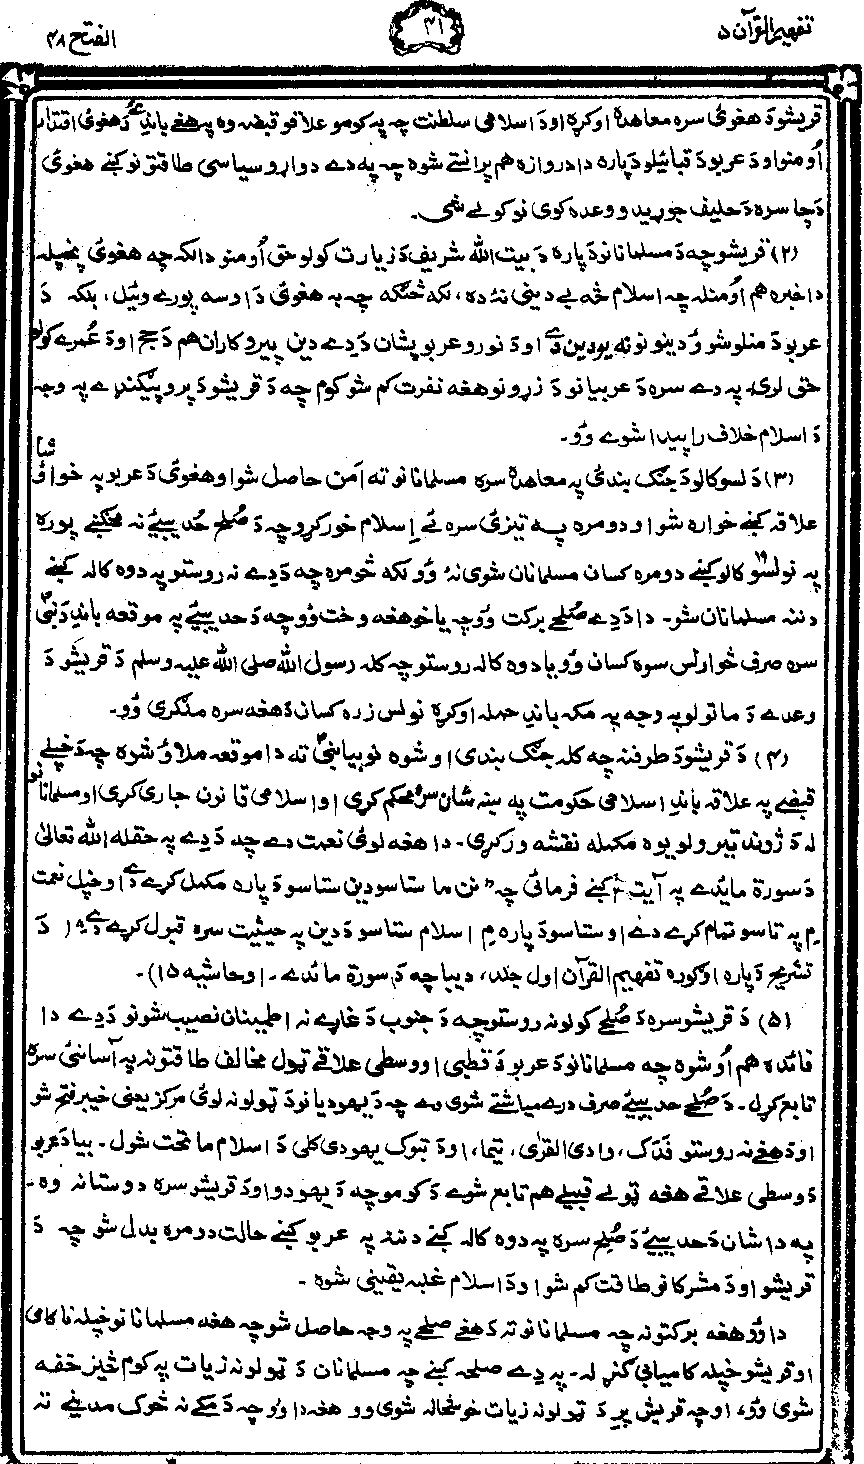 تفهیم القرآن ۵
۴۱
الفتح ۴۸
قریشو دَ هغوئ سره معاهده اوکړه او دَ اسلامی سلطنت چه په کومو علاقو قبضه وه په هغے باندِ ئے دَ هغوئ اقتدار
اُومنو او دَ عربو دَ قبائیلو دَپاره دا دروازه هم پرانستے شوه چه په دے دواړو سیاسی طاقتونو کښے هغوئ
دَچا سره دَ حلیف جوړیدو وعده کوی نو کولے شی۔
(۲) قریشو چه دَ مسلمانانو دَپاره دَ بیت الله شریف دَ زیارت کولو حق اُومنو دالکه چه هغوئ پخپله
دا خبره هم اُومنله چه اسلام څه بے دینی نۀ ده، لکه څنګه چه به هغوئ دَ اوسه پورے وئیل، بلکه دَ
عربو دَ منلو شوو دینونو نه یو دین دے او دَ نورو عربو پشان دَ دے دین پیروکاران هم دَ حج او دَ عُمرے کولو
حق لری۔ په دے سره دَ عربیانو دَ زړونو هغه نفرت کم شو کوم چه دَ قریشو دَ پروپیګنډے په وجه
دَ اسلام خلاف راپیدا شوے وؤ۔
(۳) دَ لسو کالو دَ جنګ بندئ په معاهده سره مسلمانانو ته اَمن حاصل شو او هغوئ دَ عربو په خوا وُ شا
علاقه کښے خواره شو او دومره په تیزئ سره ئے اِسلام خور کړو چه دَ صُلح حُدیبیے نه مخکښے پوره
په نولسو ۱۹ کالو کښے دومره کسان مسلمانان شوی نۀ وُو لکه څومره چه دَ دے نه روستو په دوه کاله کښے
دننه مسلمانان شو۔ دا دَ دے صُلحے برکت وؤ چه یا خو هغه وخت وؤ چه دَ حدیبیے په موقعه باندِ دَ نبیؐ
سره صرف څوارلس سوه کسان وُو یا دوه کاله روستو چه کله رسول الله صلی الله علیه وسلم دَ قریشو دَ
وعدے دَ ماتولو په وجه په مکه باندِ حمله اوکړه نولس زره کسان دَ هغه سره ملګری وُو۔
(۴) دَ قریشو دَ طرفنه چه کله جنګ بندی اوشوه نو بیا نبیؐ ته دا موقعه ملاؤ شوه چه دَ خپلے
قبضے په علاقه باندِ اسلامی حکومت په ښه شان سره محکم کړی او اسلامی قانون جاری کړی او مسلمانانو
له دَ ژوند تیرولو یوه مکمله نقشه ورکړی۔ دا هغه لوئ نعمت دے چه دَ دے په حقله الله تعالیٰ
دَ سورة مائدے په آیت ۳ کښے فرمائی چه "نن ما ستاسو دین ستاسو دَپاره مکمل کړے دے او خپل نعمت
مِ په تاسو تمام کړے دے او ستاسو دَپاره مِ اسلام ستاسو دَ دین په حیثیت سره قبول کړے دے" (دَ
تشریح دَپاره اوګوره تفهیم القرآن اول جلد، دیباچه دَ سورة مائدے۔ او حاشیه ۱۵)۔
(۵) دَ قریشو سره دَ صُلحے کولو نه روستو چه دَ جنوب دَ غاړے نه اطمینان نصیب شو نو دَ دے دا
فائده هم اُوشوه چه مسلمانانو دَ عربو دَ قطبی او وسطی علاقے ټول مخالف طاقتونه په آسانئ سره
تابع کړل۔ دَ صُلح حدیبیے صرف درے میاشتے شوی وے چه دَ یهودیانو دَ ټولو نه لوئ مرکز یعنی خیبر فتح شو
او دَ هغے نه روستو فَدَک، وادی القرٰی، تیما، او دَ تبوک یهودی کلی دَ اسلام ماتحت شول۔ بیا دَ عربو
دَ وسطی علاقے هغه ټولے قبیلے هم تابع شوے دَ کومو چه دَ یهودو او دَ قریشو سره دوستانه وه۔
په دا شان دَ حدیبیے دَ صُلح سره په دوه کاله کښے دننه په عربو کښے حالت دومره بدل شو چه دَ
قریشو او دَ مشرکانو طاقت کم شو او دَ اسلام غلبه یقینی شوه۔
دا وُو هغه برکتونه چه مسلمانانو ته دَ هغے صلحے په وجه حاصل شو چه هغه مسلمانانو خپله ناکامی
او قریشو خپله کامیابی ګڼله۔ په دے صلحه کښے چه مسلمانان دَ ټولو نه زیات په کوم څیز خفه
شوی وُو، او چه قریش پرِ دَ ټولو نه زیات خوشحاله شوی وو هغه دا وؤ چه دَ مکے نه څوک مدینے ته